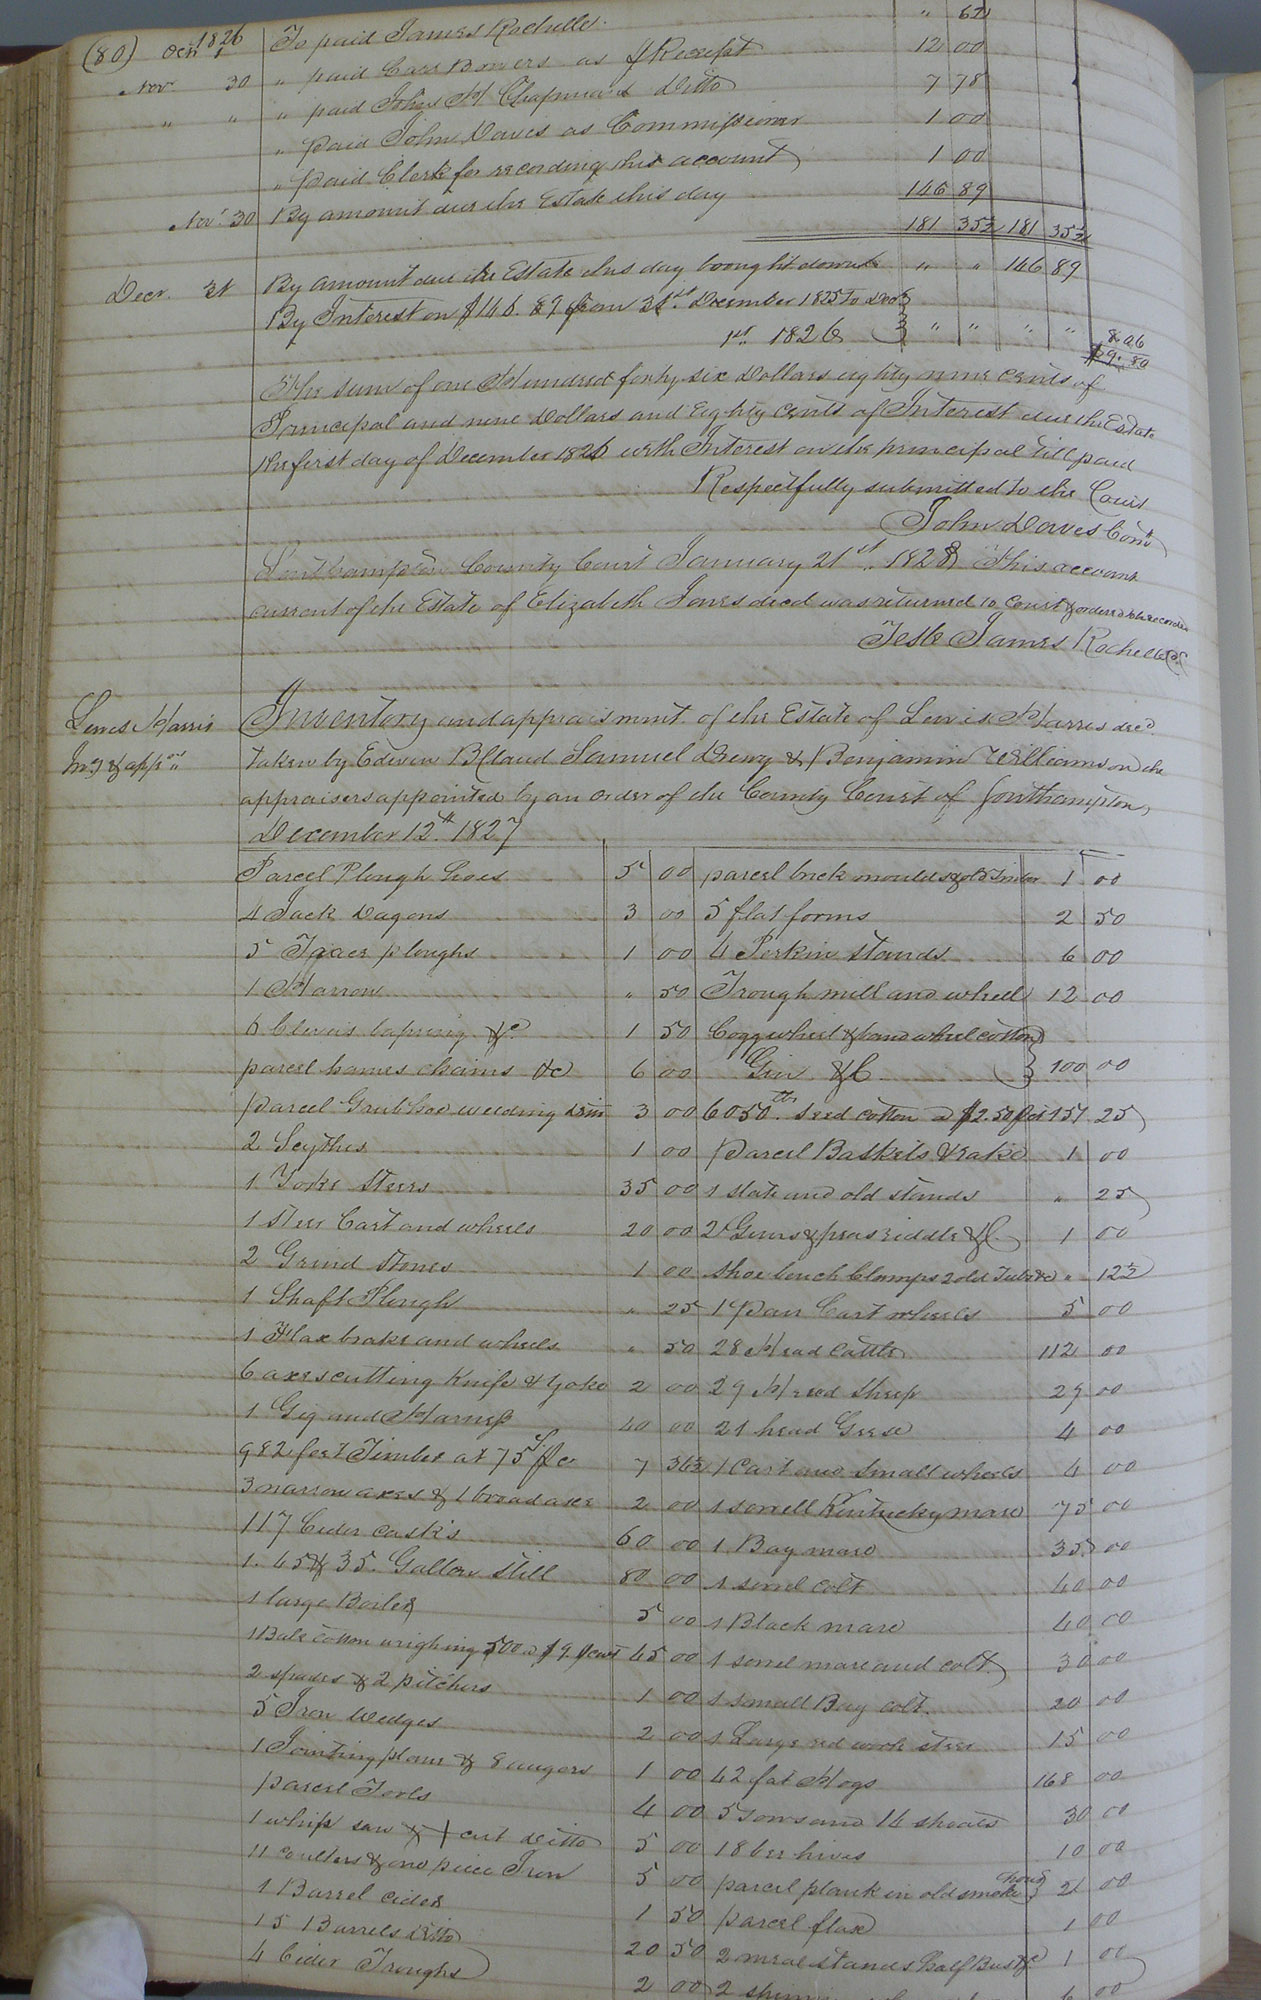 (80) Octr 1826 To paid James Rochelle " 62½
Novr 30 " paid Carr Bowers as pr Receipt 12 00
" " " paid John H Chapman Ditto 7 78
" paid John Daves as Commissioner 1 00
" paid Clerk for recording this account 1 00
Novr 30 By amount due the Estate this day 146 89
181 35½ 181 35½
Decr 31 By amount due the Estate this day brought down " " 146 89
By Interest on $146.89 from 31st December 1825 to Decr
1st 1826 " " " " 8.06
$9.80
The sum of one Hundred forty six Dollars eighty nine cents of
Principal and nine Dollars and Eighty cents of Interest due the Estate
the first day of December 1826 with Interest on the principal till paid
Respectfully submitted to the Court
John Daves Comr
Southampton County Court January 21st 1828 This account
current of the Estate of Elizabeth Jones decd was returned to Court & ordered to be recorded
Teste James Rochelle C
Lewis Harris
Invy & appmt
Inventory and appraisment of the Estate of Lewis Harris decd
taken by Edwin B Claud Samuel Drewry & Benjamin Williamson the
appraisers appointed by an order of the County Court of Southampton
December 12th 1827
Parcel Plough hoes 5 00 parcel brick moulds & old 1 00
4 Jack Dagons 3 00 5 flat forms 2 50
5 ploughs 1 00 4 Perkin stands 6 00
1 Harrow " 50 Trough mill and wheel 12 00
6 Clevis &c 1 50 Cogg wheel & band wheel cotton
parcel hames chains &c 6 00 Gin &C 100 00
parcel Grub hoe weeding ditto 3 00 6050 lbs seed cotton a $2.50 pct 151 25
2 Scythes 1 00 parcel Baskets & rake 1 00
1 Yoke Steers 35 00 1 slate and old stands " 25
1 steer Cart and wheels 20 00 2 & peas riddle &C 1 00
2 Grind stones 1 00 shoe bench Clamps 2 old Tubs &c " 12½
1 Shaft Plough " 25 1 pair Cart wheels 5 00
1 Flax brake and wheels " 50 28 Head Cattle 112 00
6 axes cutting Knife & Yoke 2 00 29 Head Sheep 29 00
1 Gig and Harness 40 00 21 head Geese 4 00
982 feet Timber at 75 c pr c 7 36½ 1 Cart and small wheels 4 00
3 narrow axes & 1 broad axe 2 00 1 sorrell Kentucky mare 75 00
117 Cider casks 60 00 1 Bay mare 35 00
1. 45 & 35. Gallon still 80 00 1 sorrel colt 40 00
1 large Boiler 5 00 1 Black mare 40 00
1 Bale cotton weighing 500 a $9 pr cwt 45 00 1 sorrel mare and colt 30 00
2 spades & 2 pitchers 1 00 1 small Bay colt 20 00
5 Iron wedges 2 00 1 Large red work steer 15 00
1 Jointing plane & 8 augers 1 00 42 fat Hogs 168 00
parcel Tools 4 00 5 sows and 14 shoats 30 00
1 whip saw & + cut ditto 5 00 18 bee hives 10 00
11 coulters & one piece Iron 5 00 parcel plank in old smoke house 2 00
1 Barrel cider 1 50 parcel flax 1 00
15 Barrels Ditto 20 50 2 meal stands half Bus &c 1 00
4 Cider Troughs 2 00 2 6 00